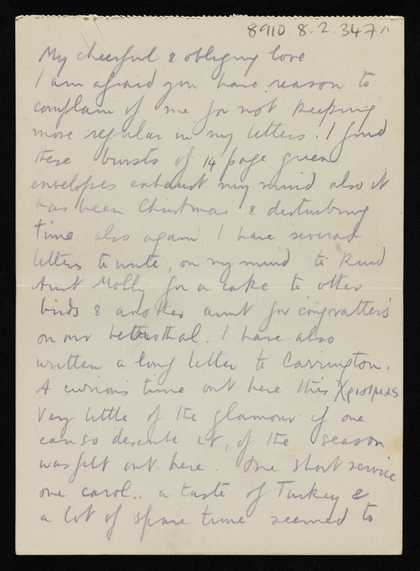 8910 8.2.347
My cheerful & obliging love
I am afraid you have reason to
complain of me for not keeping
more regular in my letters. I find
these bursts of 14 page green
envelopes exhaust my mind also it
has been Christmas & disturbing
time also again I have several
letters to write, on my mind to kind
Aunt Molly for a cake to other
birds & another aunt for congratters
on our betrothal. I have also
written a long letter to Carrington.
A curious time out here this
very little of the glamour if one
can so describe it, of the season
was felt out here. One short service
one carol.. a taste of Turkey &
a lot of spare time seemed to